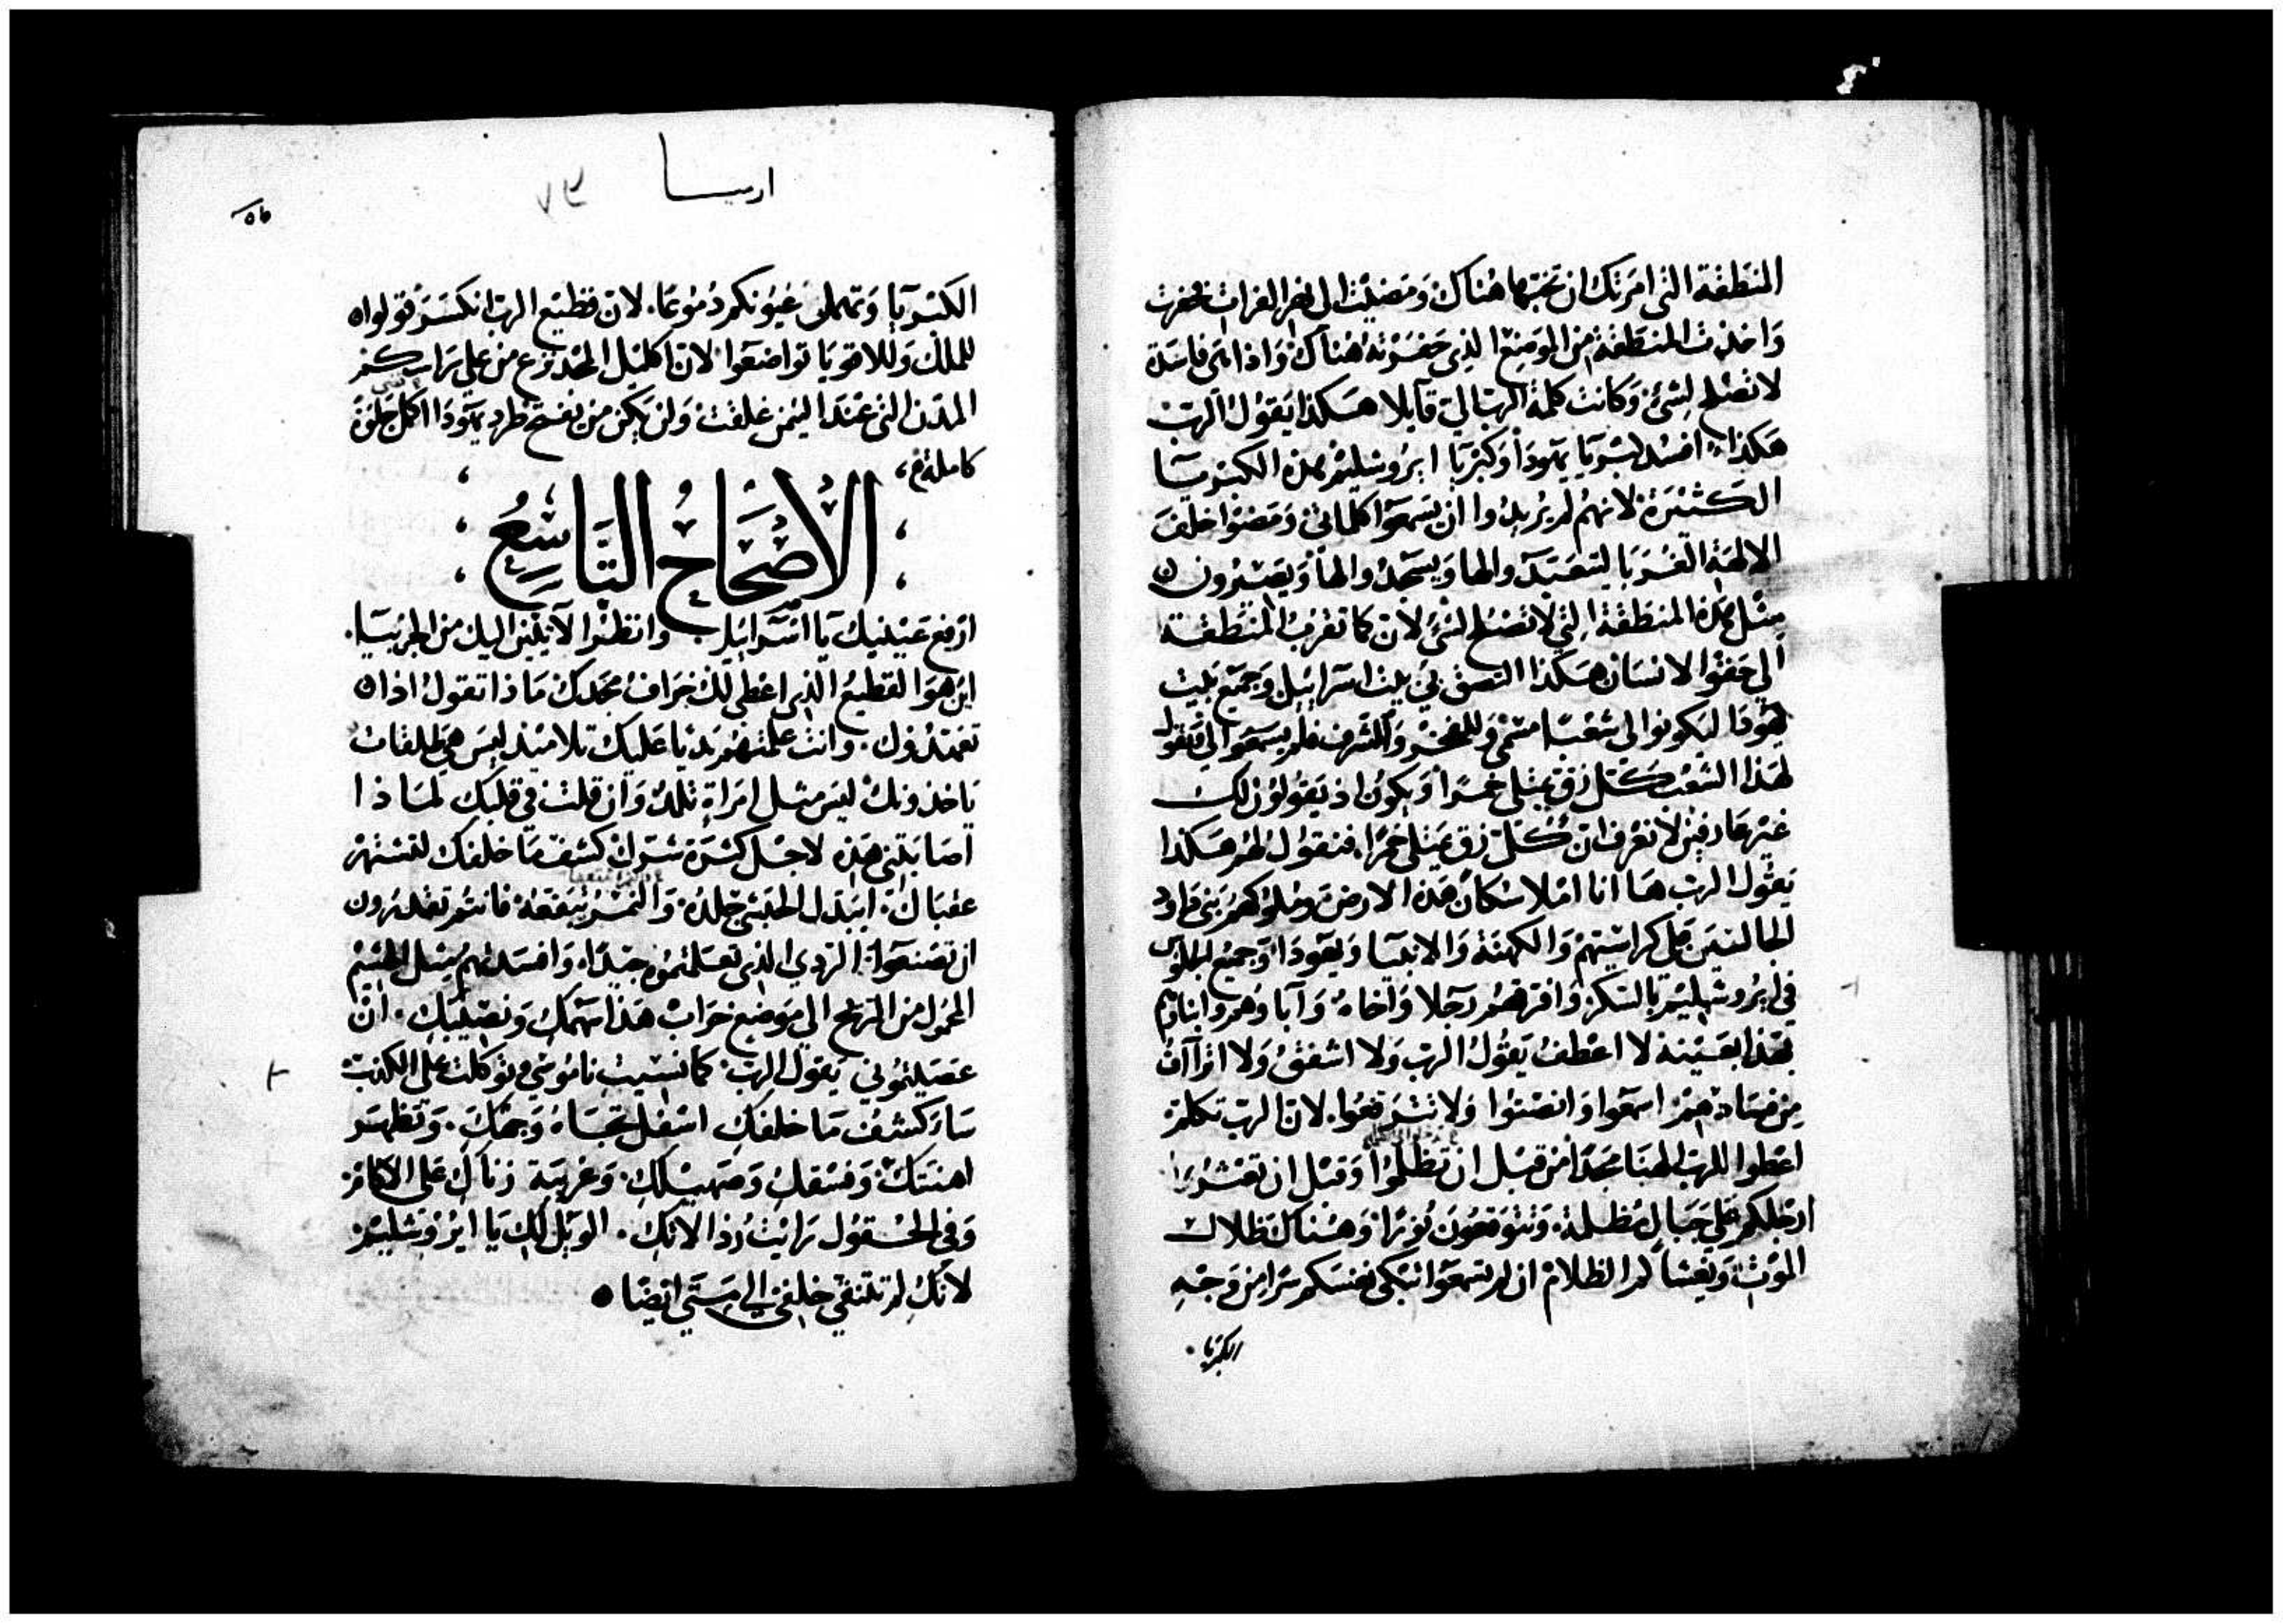 المنطقة التى امرتك ان تخبيها هناك ومضيت الى نهر الفرات فحفرت
واخذت المنطقة من الموضع الذى حفرته هناك واذا هى فاسدة
لا تصلح لشئ وكانت كلمة الرب الى قايلا هكذا يقول الرب
هكذا افسد كبريا يهودا وكبريا ايروشليم هذه الكبريا
الكثيرة لانهم لم يريدوا ان يسمعوا كلماتى ومضوا خلف
الالهة الغربا ليتعبدوا لها ويسجدوا لها ويصيرون
مثل هذه المنطقة التى لا تصلح لشئ لان كما تقرب المنطقة
الى حقوا الانسان هكذا التصق بى بيت اسرائيل وجميع بيت
يهودا ليكونوا لى شعبا مسمى وللفخر وللشرف فلم يسمعوا لى فتقول
لهذا الشعب كل زق يمتلى خمرا ويكون اذ يقولون لك
غير عارفين لا نعرف ان كل زق يمتلى خمرا فتقول لهم هكذا
يقول الرب ها انا املا سكان هذه الارض وملوكهم بنى داود
الجالسين على كراسيهم والكهنة والانبيا ويهودا وجميع الجلوس
فى ايروشليم بالسكر وافرقهم رجلا واخاه وآباوهم وابناوهم
بهذا بعينه لا اعطف يقول الرب ولا اشفق ولا اتراأف
من فسادهم اسمعوا وانصتوا ولا تترفعوا لان الرب تكلم
اعطوا للرب الهنا مجدا من قبل ان تظلموا وقبل ان تعثروا
ارجلكم على جبال مظلمة وتتوقعون نورا وهناك ظلال
الموت ويغشاكم الظلام ان لم تسمعوا تبكى نفسكم سرا من وجه
الكبريا
ارميا
٥٦
الكبريا وتهمل عيونكم دموعا لان قطيع الرب انكسر قولوا
للملك وللاقويا تواضعوا لان اكليل المجد نزع من على راسكم
المدن التى عند اليمن غلقت ولن يكن من يفتح طرد يهودا اكمل جلوة
كاملة
الاصحاح التاسع
ارفع عينيك يا اسرائيل وانظروا الآتين اليك من الجربيا
اين هو القطيع الذى اعطى لك خراف مجدك ماذا تقول اذا
تعهدوك وانت علمتهم بديا عليك تلاميذ ليس هى طلقات
ياخذونك ليس مثل امراة تلد وان قلت فى قلبك لماذا
اصابتنى هذه لاجل كثرة شرك كشف ما خلفك لتشتهر
عقباك ايبدل الحبشى جلده والنمر بقعه فانتم تقدرون
ان تصنعوا الردى الذى تعلمتموه جيدا وافسدتهم مثل الهشيم
المحمول من الريح الى موضع خراب هذا سهمك ونصيبك ان
عصيتمونى يقول الرب كما نسيت ناموسى وتوكلت على الكذب
ساكشف ما خلفك اسفل تجاه وجهك وتظهر
اهنتك وفسقك وصهيلك وغربة زناك على الاكام
وفى الحقول رايت رذالاتك الويل لك يا ايروشليم
لانك لم تلتقى خلفى الى متى ايضا